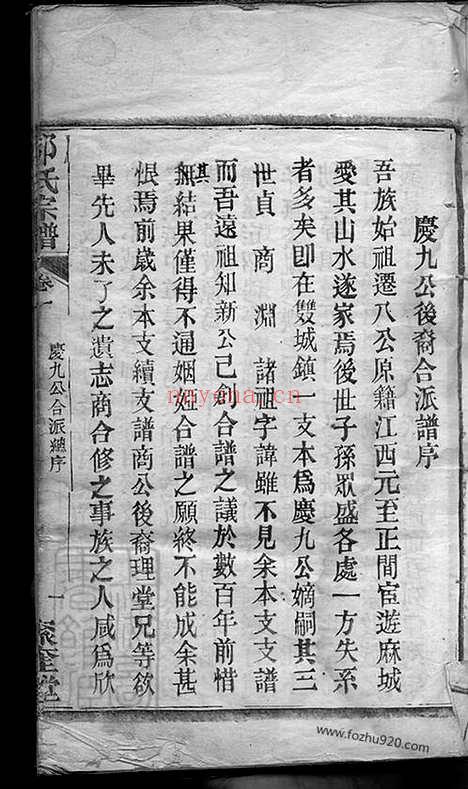 慶九公後裔合派譜序
吾族始祖遷八公原籍江西元至正間宦遊麻城
愛其山水遂家焉後世子孫眾盛各處一方失系
者多矣即在雙城鎮一支本為慶九公嫡嗣其三
世貞　商　淵　諸祖字諱雖不見余本支支譜
而吾遠祖知新公已創合譜之議於數百年前惜
其無結果僅得不通姻姓合譜之願終不能成余甚
恨焉前歲余本支續支譜商公後裔理堂兄等欲
畢先人未了之遺志商合修之事族之人咸為欣
氏宗譜
卷一
慶九公合派總序
一
堂
nayona.cn
www.fozhu920.com